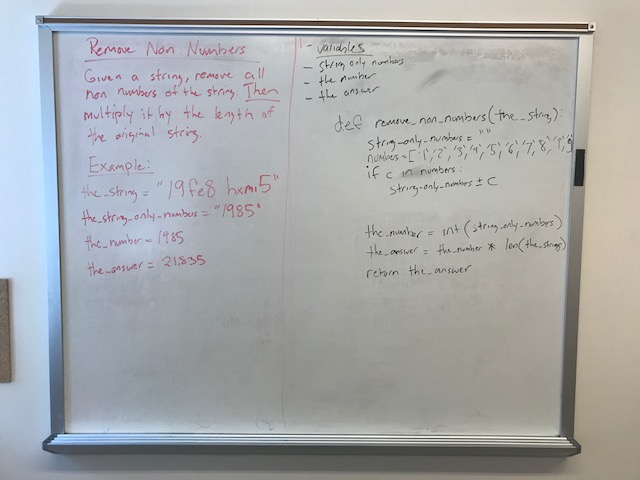 Remove Non Numbers
Given a string, remove all
non numbers of the string. Then
multiply it by the length of
the original string.
Example:
the_string = "19fe8 hxmi5"
the_string_only_numbers = "1985"
the_number = 1985
the_answer = 21,835
variables
- string only numbers
- the number
- the answer
def remove_non_numbers(the_string):
string_only_numbers = ""
numbers = ['1','2','3','4','5','6','7','8','9','0']
if c in numbers:
string_only_numbers ± c
the_number = int(string_only_numbers)
the_answer = the_number * len(the_string)
return the_answer